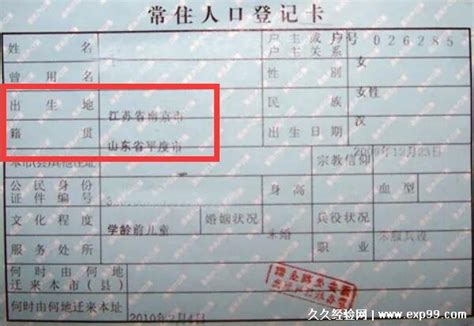 常住人口登记卡
姓 名 户主或户号 026285
户主关系 女
曾用名 性别 女性
出生地 江苏省南京市 民族
籍贯 山东省平度市 出生日期 汉
本市(县)其他住址 宗教信仰 2006年12月23日
公民身份证件编号 3 身高 血型
文化程度 学龄前儿童 婚姻状况 未婚 兵役状况
服务处所 职业 未服兵役
何时由何地迁来本市(县)
何时由何地迁来本址 2010年2月4日
久久经验网 | www.exp99.com